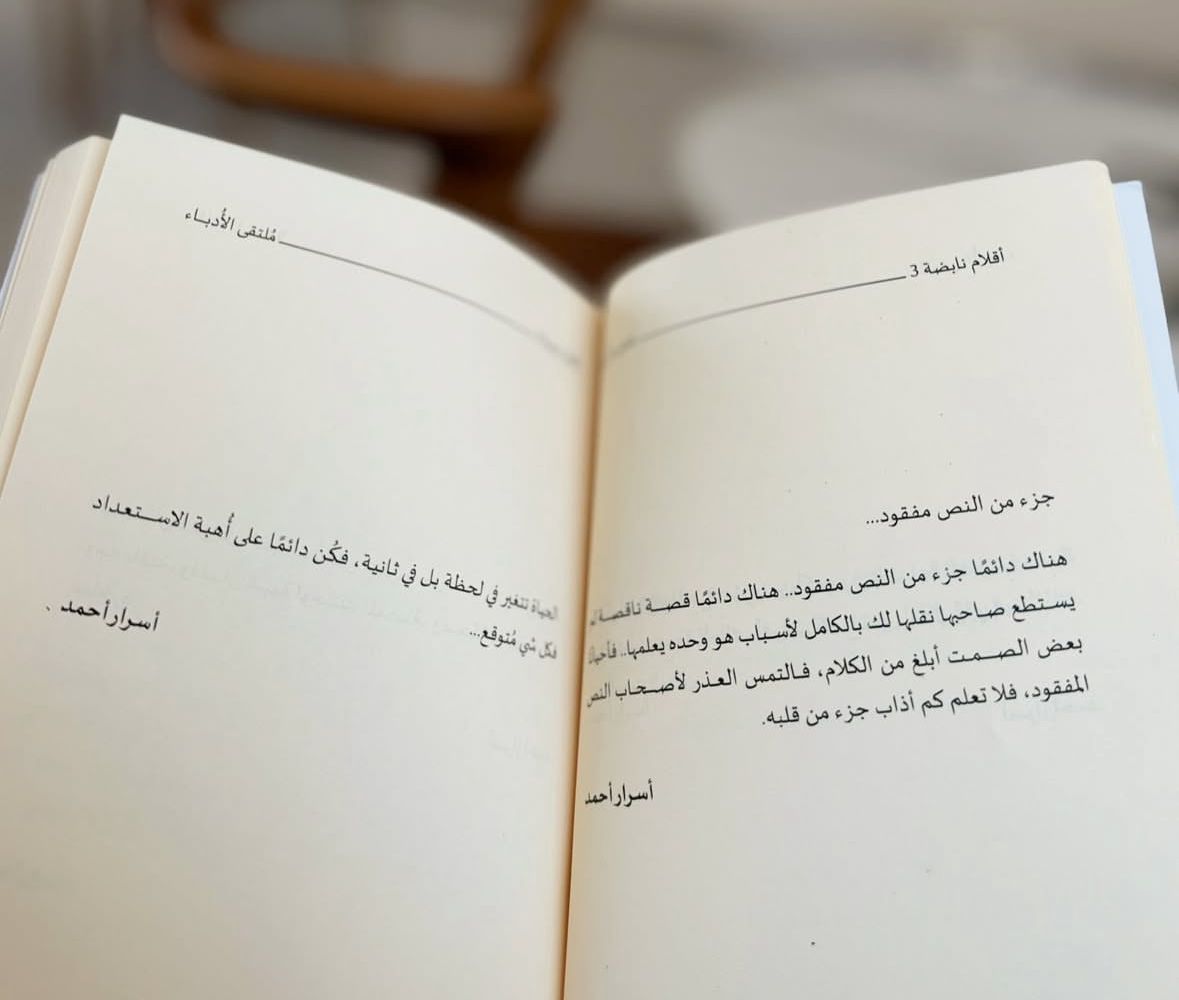 أقلام نابضة 3
جزء من النص مفقود...
هناك دائمًا جزء من النص مفقود.. هناك دائمًا قصة ناقصة لم
يستطع صاحبها نقلها لك بالكامل لأسباب هو وحده يعلمها.. فأحيانًا
بعض الصمت أبلغ من الكلام، فالتمس العذر لأصحاب النص
المفقود، فلا تعلم كم أذاب جزء من قلبه.
أسرار أحمد
مُلتقى الأُدباء
الحياة تتغير في لحظة بل في ثانية، فكُن دائمًا على أُهبة الاستعداد
فكل شي مُتوقع...
أسرار أحمد .